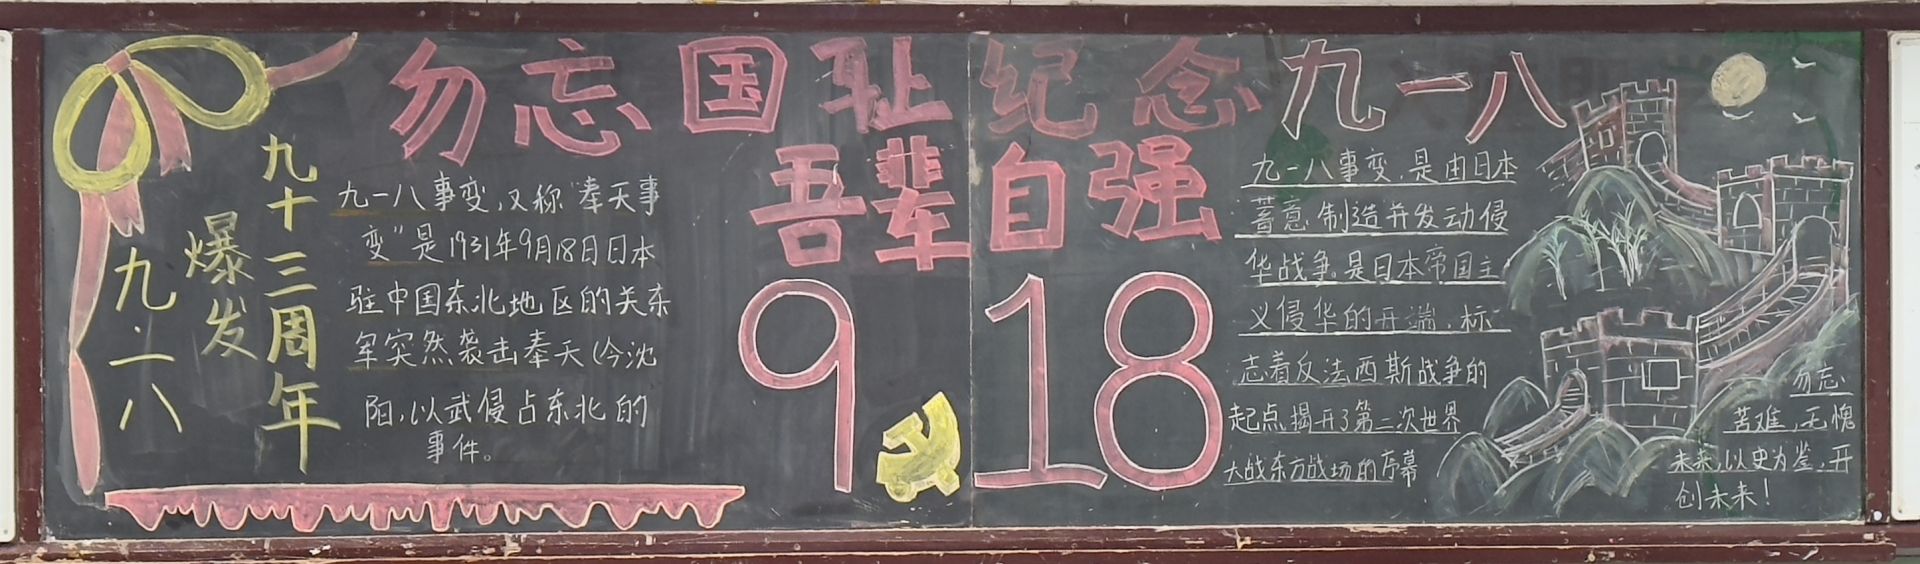 勿忘国耻纪念九一八
吾辈自强
918
九·一八
爆发
九十三周年
九一八事变,又称"奉天事
变"是1931年9月18日日本
驻中国东北地区的关东
军突然袭击奉天(今沈
阳,以武侵占东北的
事件。
九一八事变,是由日本
蓄意制造并发动侵
华战争。是日本帝国主
义侵华的开端,标
志着反法西斯战争的
起点揭开了第二次世界
大战东方战场的序幕
勿忘
苦难,无愧
未来,以史为鉴,开
创未来!